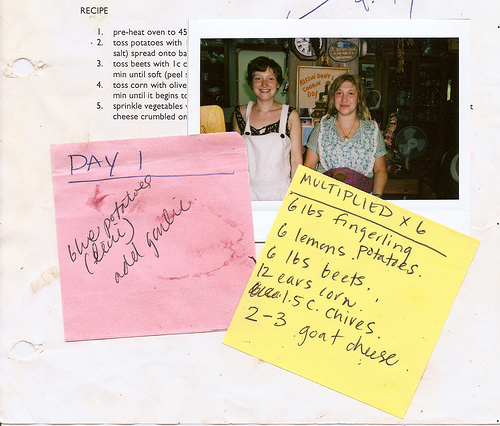 RECIPE
1. pre-heat oven to 45
2. toss potatoes with
salt) spread onto ba
3. toss beets with 1c c
min until soft (peel s
4. toss corn with olive
min until it begins to
5. sprinkle vegetables
cheese crumbled on
DAY 1
blue potatoes
add garlic
MULTIPLIED x 6
6 lbs fingerling
potatoes.
6 lemons
6 lbs beets.
12 ears corn.
1.5 c. chives.
2-3 goat cheese